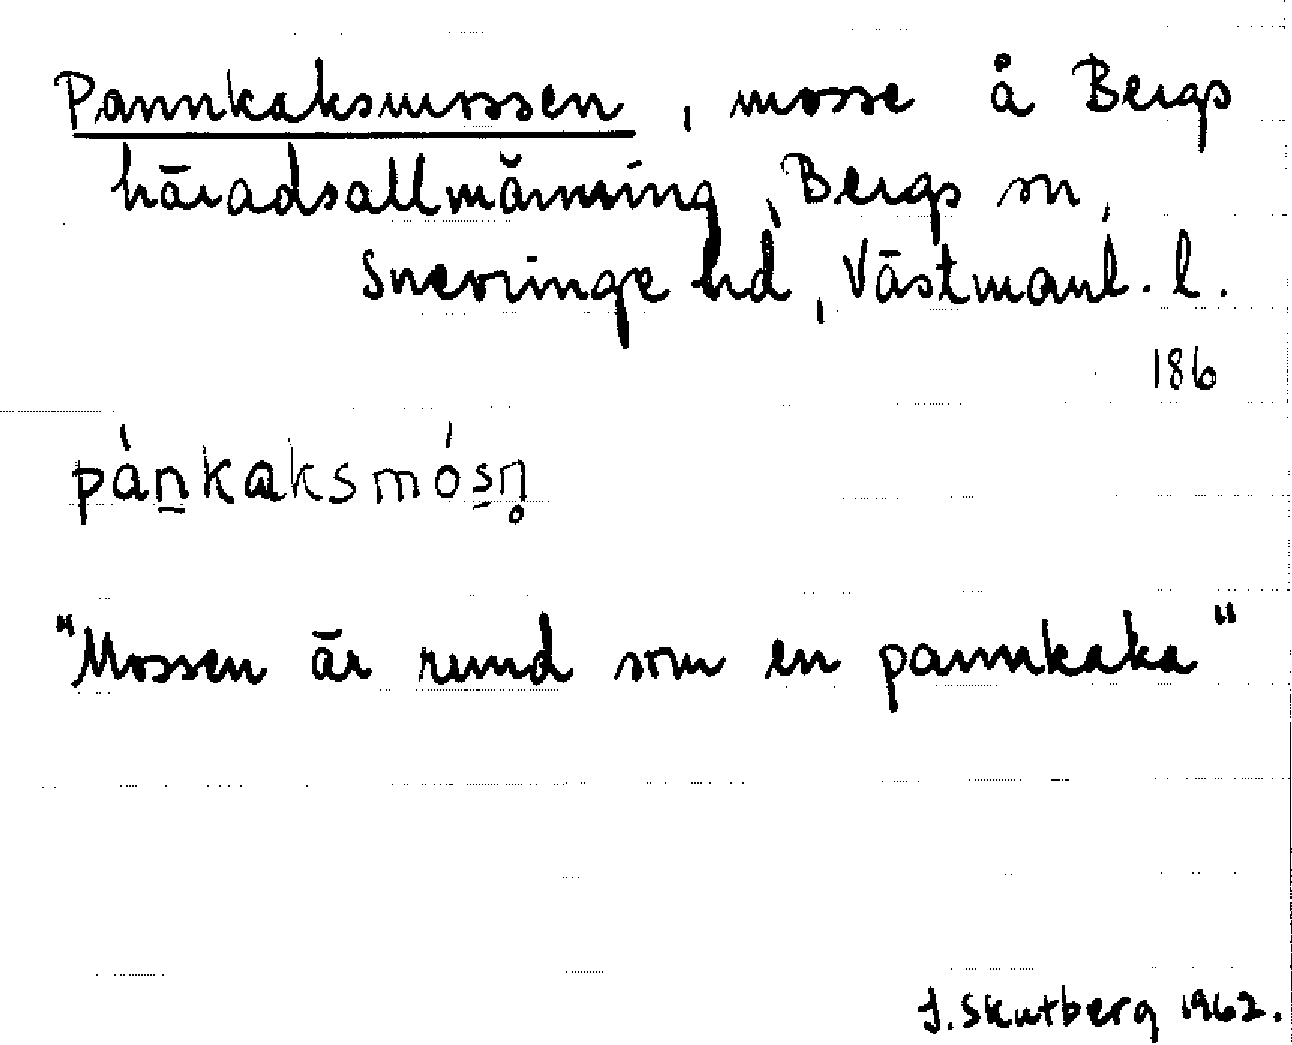 Pannkaksmossen, mosse å Bergs
häradsallmänning, Bergs sn,
Snevringe hd, Västmanl. l.
186
pànkaksmósn̥
"Mossen är rund som en pannkaka"
J. Skutberg 1962.